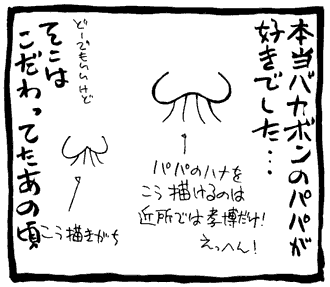 本当バカボンのパパが
好きでした・・・
パパのハナを
こう描けるのは
近所では孝博だけ!
えっへん!
どーでもいいけど
こう描きがち
そこは
こだわってたあの頃